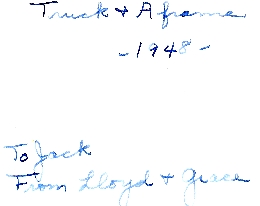 Truck + A frame
- 1948 -
To Jack
From Lloyd + Grace